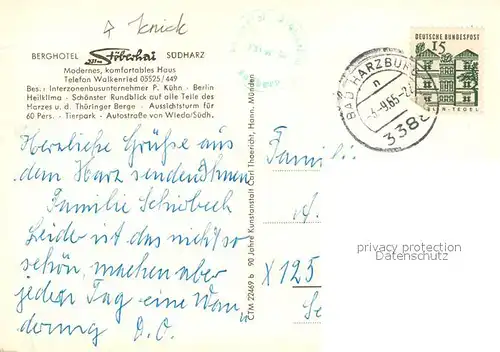 knick
BERGHOTEL Stöberhai SÜDHARZ
Modernes, komfortables Haus
Telefon Walkenried 05525/449
Bes.: Interzonenbusunternehmer P. Kühn - Berlin
Heilklima - Schönster Rundblick auf alle Teile des
Harzes u. d. Thüringer Berge - Aussichtsturm für
60 Pers. - Tierpark - Autostraße von Wieda/Südh.
Herzliche Grüße aus
dem Harz senden Ihnen
Familie
Leider ist das nicht so
schön, machen aber
jeden Tag eine Wan
derung D.O.
CTM 22469 b 90 Jahre Kunstanstalt Carl Thoericht, Hann. Münden
DEUTSCHE BUNDESPOST
15
BERLIN-TEGEL
BAD HARZBURG
n
-6.-9.65-
338
Famil
A.
X 125
Se
privacy protection
Datenschutz